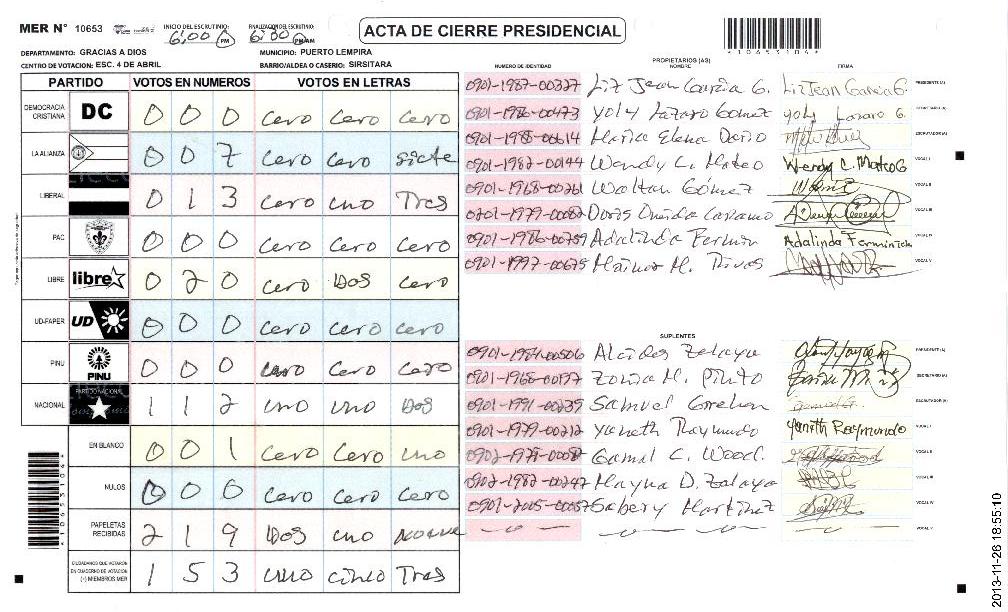 MER N° 10653
INICIO DEL ESCRUTINIO: 6:00 PM
FINALIZACION DEL ESCRUTINIO: 6:30 PM AM
ACTA DE CIERRE PRESIDENCIAL
*10653104*
DEPARTAMENTO: GRACIAS A DIOS
MUNICIPIO: PUERTO LEMPIRA
CENTRO DE VOTACION: ESC. 4 DE ABRIL
BARRIO/ALDEA O CASERIO: SIRSITARA
PARTIDO VOTOS EN NUMEROS VOTOS EN LETRAS
DEMOCRACIA CRISTIANA DC 0 0 0 cero cero cero
LA ALIANZA 0 0 7 cero cero siete
LIBERAL 0 1 3 cero uno Tres
PAC 0 0 0 cero cero cero
LIBRE libre 0 2 0 cero Dos cero
UD-FAPER UD 0 0 0 cero cero cero
PINU PINU 0 0 0 cero cero cero
NACIONAL 1 1 2 uno uno Dos
EN BLANCO 0 0 1 cero cero uno
NULOS 0 0 0 cero cero cero
PAPELETAS RECIBIDAS 2 1 9 Dos uno nueve
CIUDADANOS QUE VOTARON EN CUADERNO DE VOTACION (+) MIEMBROS MER 1 5 3 uno cinco Tres
PROPIETARIOS (AS)
NUMERO DE IDENTIDAD NOMBRE FIRMA
0901-1987-00327 Liz Jean Garcia G. Liz Jean Garcia G. PRESIDENTE (A)
0901-1986-00473 Yoly Lazaro Gomez Yoly Lazaro G. SECRETARIO (A)
0901-1988-00614 Maria Elena ESCRUTADOR (A)
0901-1982-00144 Wendy C. Mateo Wendy C. Mateo G VOCAL I
0901-1968-00261 Waltan Gómez VOCAL II
0201-1979-00082 VOCAL III
0901-1986-00759 Adalinda Fermin Adalinda Fermin VOCAL IV
0901-1997-00675 Rivas VOCAL V
SUPLENTES
0901-1981-00506 Alcides Zelaya PRESIDENTE (A)
0901-1968-00197 Zonia M. Pinto SECRETARIO (A)
0901-1991-00239 Samuel ESCRUTADOR (A)
0901-1979-00212 Yaneth Raymundo Yaneth Raymundo VOCAL I
0902-1979-00087 Gamal C. Wood. VOCAL II
0902-1982-00247 Mayra D. Zelaya VOCAL III
0901-2005-00057 Sabery Martinez VOCAL IV
VOCAL V
*10653104*
2013-11-26 18:55:10